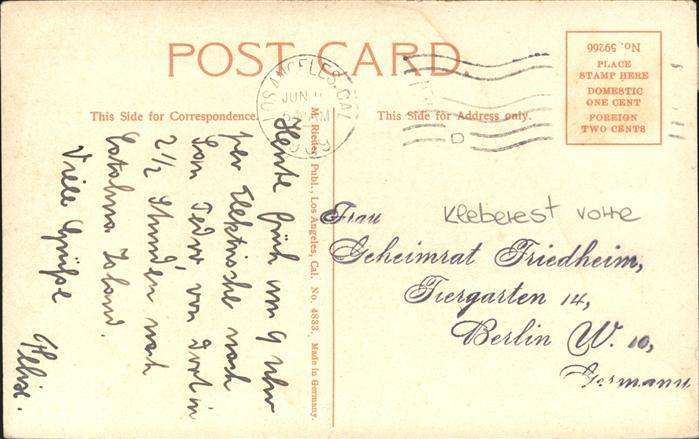 POST CARD
No. 59266
PLACE
STAMP HERE
DOMESTIC
ONE CENT
FOREIGN
TWO CENTS
LOS ANGELES, CAL.
JUN
This Side for Correspondence.
This Side for Address only.
M. Rieder, Publ., Los Angeles, Cal. No. 4833. Made in Germany.
Heute früh um 9 Uhr
per Elektrische nach
San Pedro, von dort in
2 1/2 Stunden nach
Catalina Island.
Viele Grüße
Kleberest vorne
Frau
Geheimrat Friedheim,
Tiergarten 14,
Berlin W. 10,
Germany